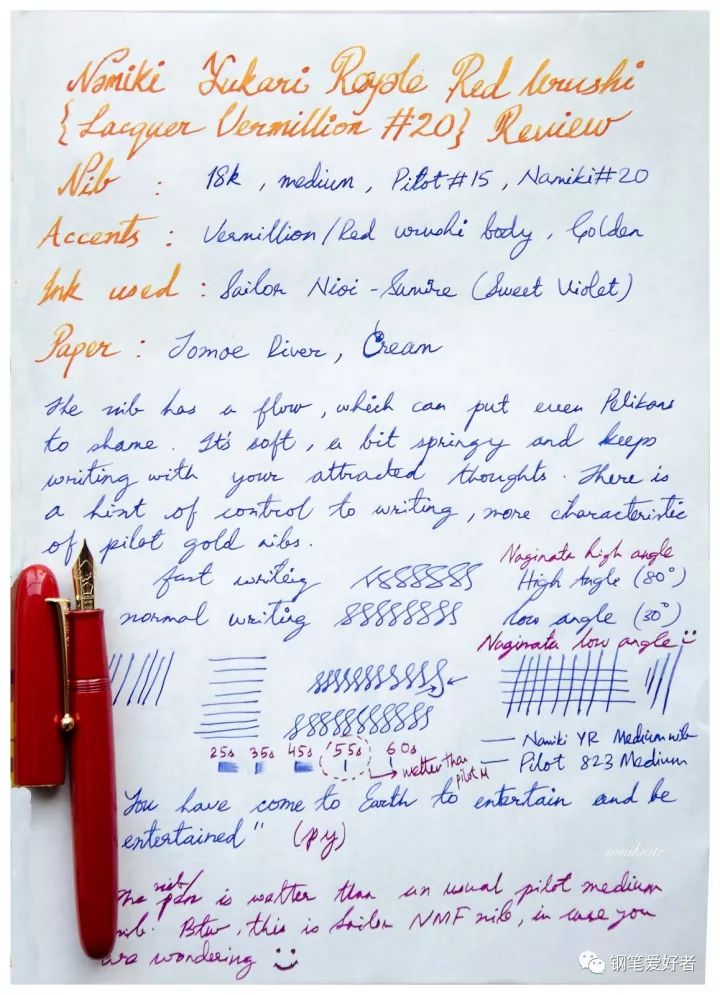 Namiki Yukari Royale Red Urushi
{Lacquer Vermillion #20} Review
Nib : 18k, medium, Pilot #15, Namiki #20
Accents : Vermillion/Red urushi body, Golden
Ink used : Sailor Nioi-Sumire (Sweet Violet)
Paper : Tomoe River, Cream
The nib has a flow, which can put even Pelikans
to shame. It's soft, a bit springy and keeps
writing with your attracted thoughts. There is
a hint of control to writing, more characteristic
of pilot gold nibs.
Naginata high angle
fast writing High Angle (80°)
normal writing low angle (30°)
Naginata low angle
25s 35s 45s 55s 60s
wetter than
pilot M
Namiki YR Medium nib
Pilot 823 Medium
You have come to Earth to entertain and be
entertained" (py)
The nib/
pen is wetter than an usual pilot medium
nib. Btw, this is Sailor NMF nib, in case you
are wondering :)
钢笔爱好者